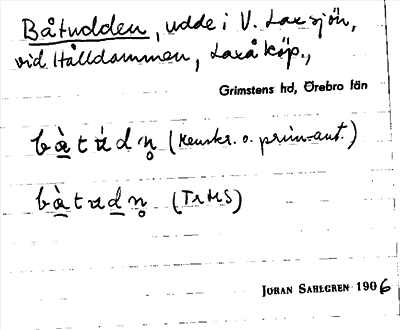 Båtudden, udde i V. Laxsjön,
vid Hålldammen, Laxå köp.,
Grimstens hd, Örebro län
bàtúdn̥ (Renskr. o. prim-ant.)
bàtudn̥ (TrMS)
JÖRAN SAHLGREN 1906